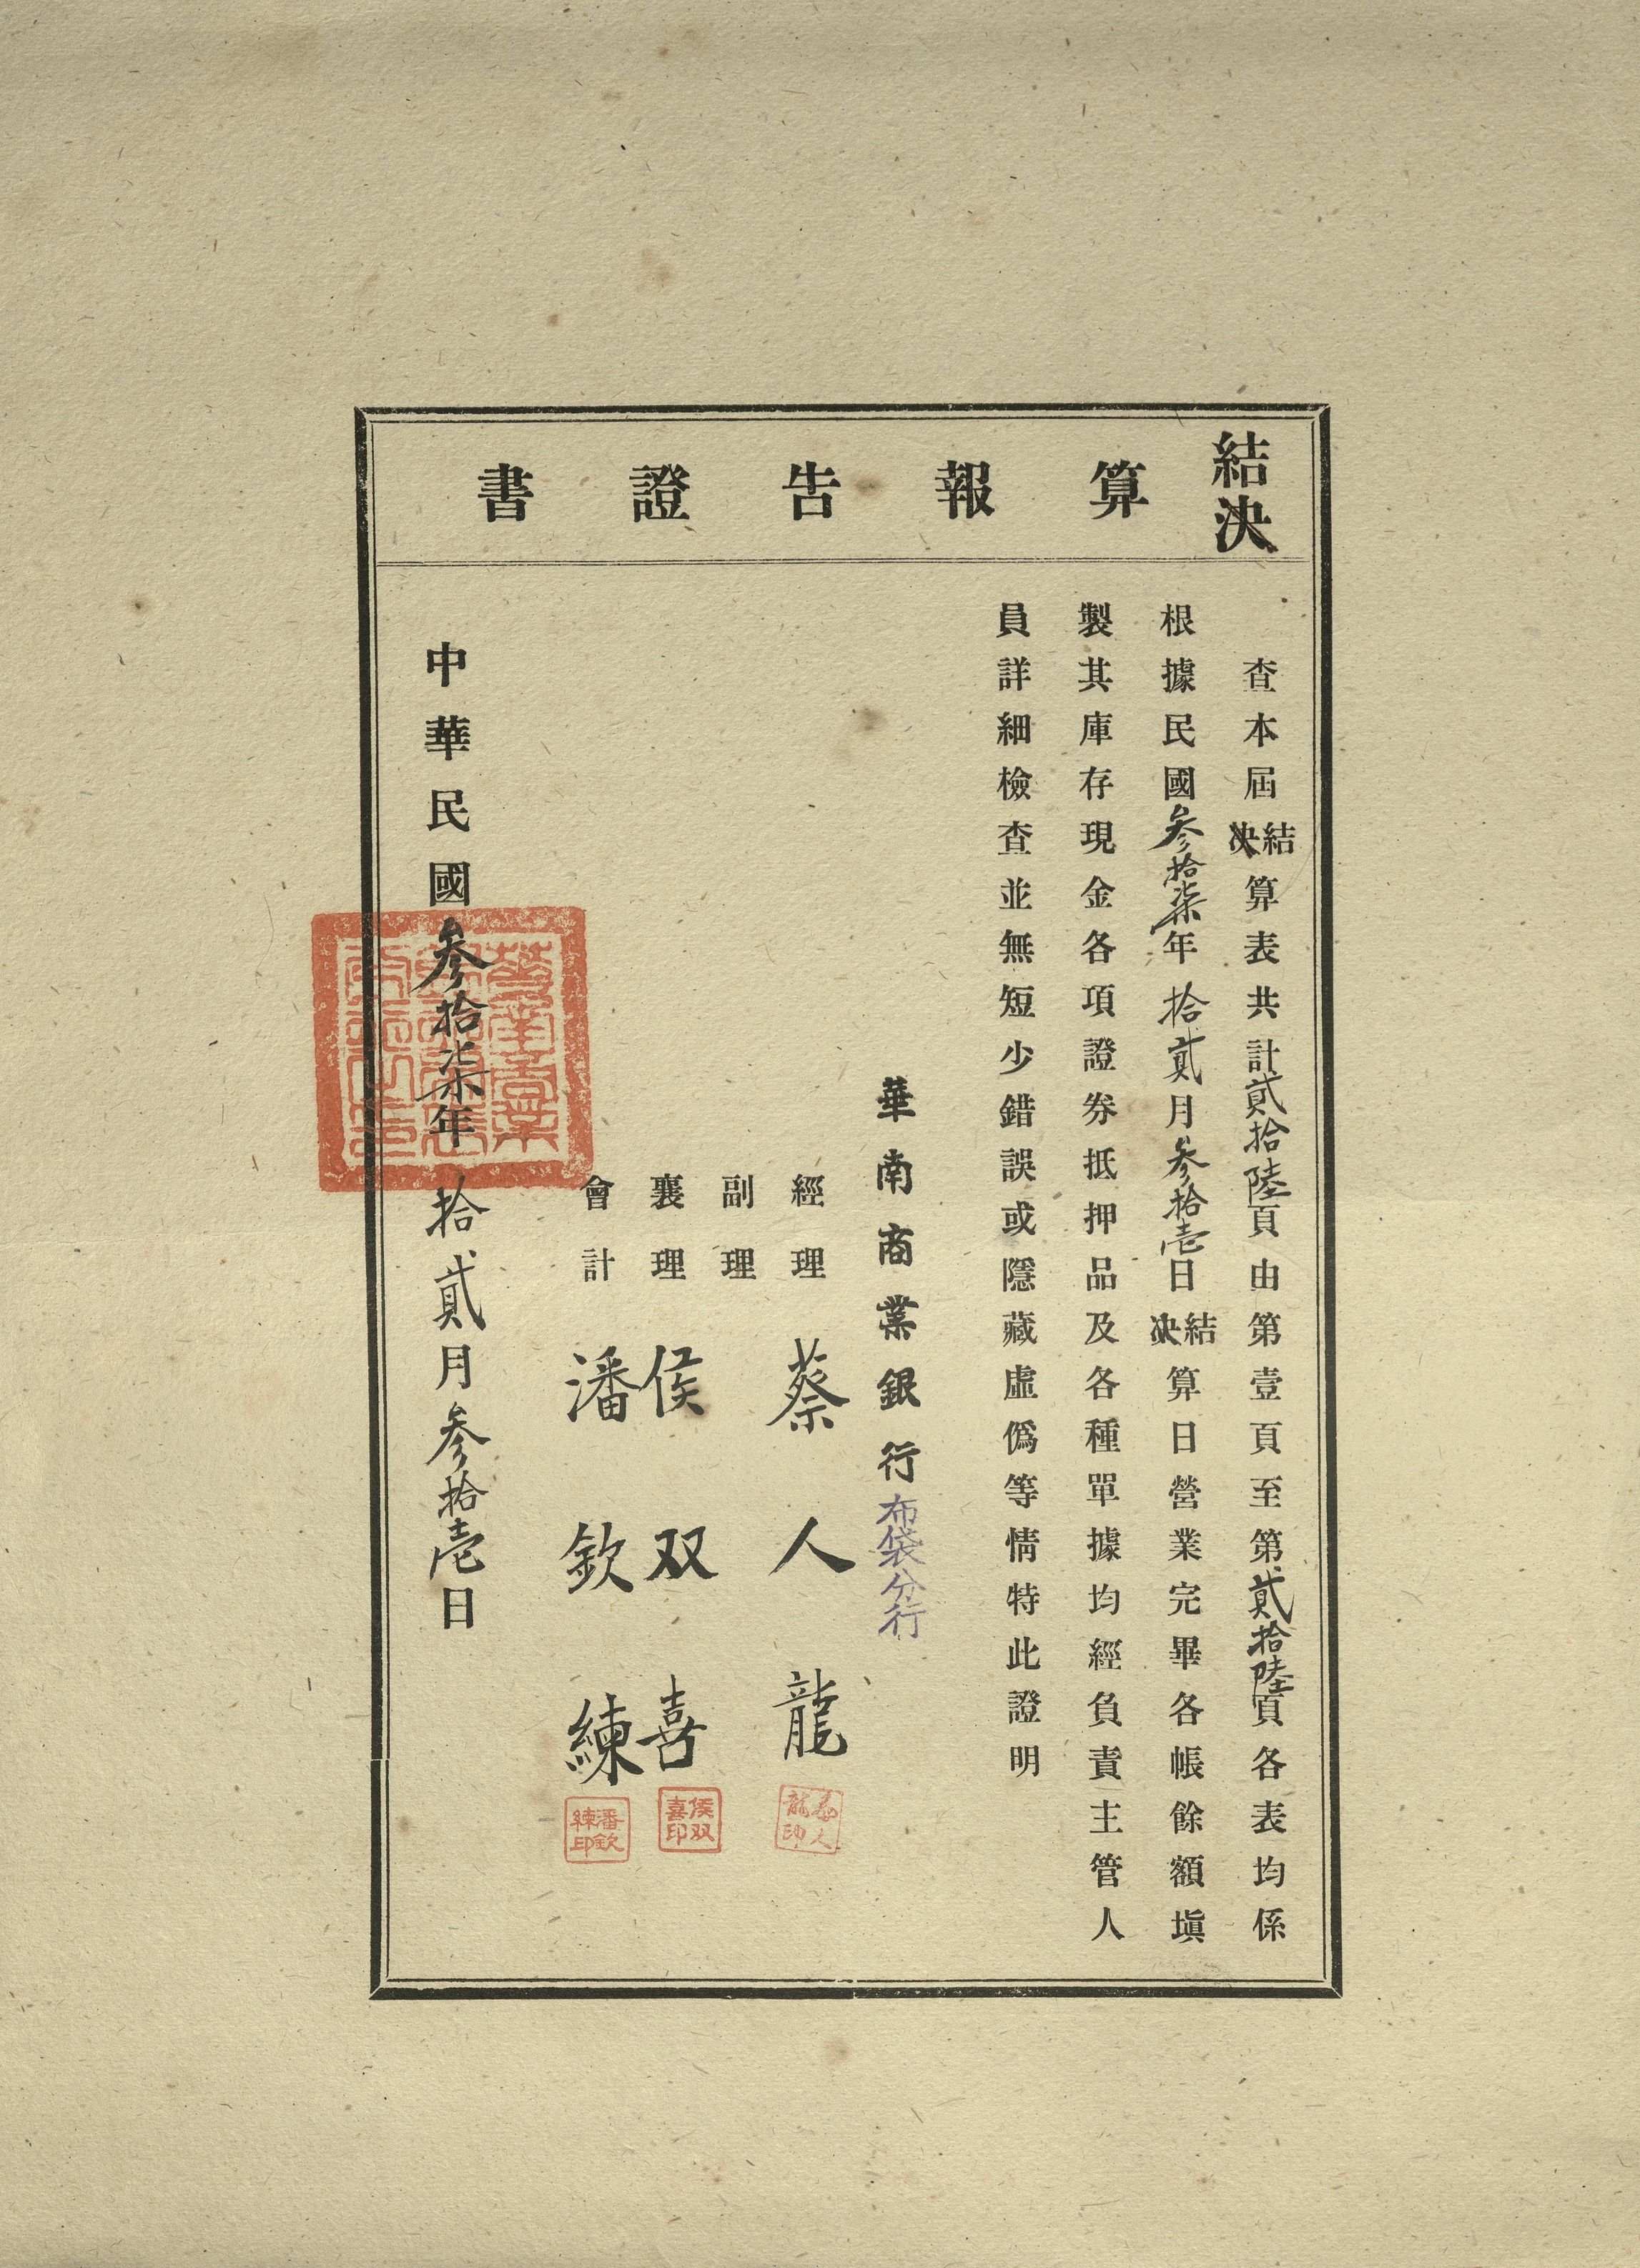 結決算報告證書
查本屆結決算表共計貳拾陸頁由第壹頁至第貳拾陸頁各表均係
根據民國叁拾柒年拾貳月叁拾壱日結決算日營業完畢各帳餘額塡
製其庫存現金各項證券抵押品及各種單據均經負責主管人
員詳細檢查並無短少錯誤或隱藏虛僞等情特此證明
華南商業銀行布袋分行
經理 蔡人龍
蔡人龍印
副理
襄理 侯双喜
侯双喜印
會計 潘欽練
潘欽練印
中華民國叁拾柒年拾貳月叁拾壱日